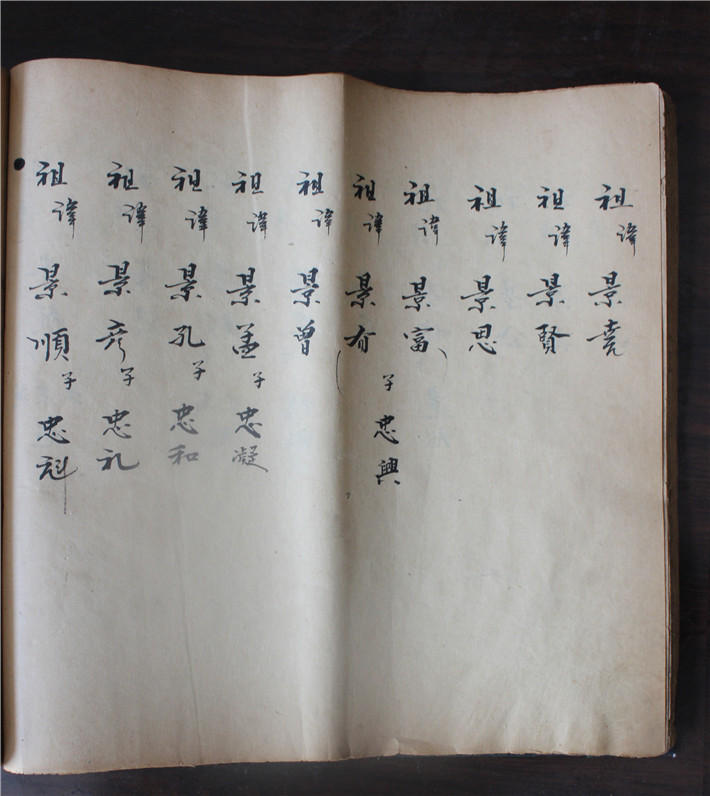 祖諱景堯
祖諱景賢
祖諱景思
祖諱景富
祖諱景有子忠興
祖諱景曾
祖諱景孟子忠凝
祖諱景孔子忠和
祖諱景彥子忠礼
祖諱景順子忠魁